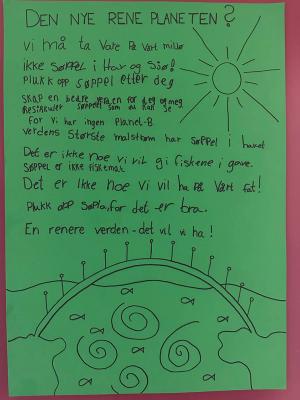 DEN NYE RENE PLANETEN?
Vi må ta Vare På Vårt miljø
ikke søppel i Hav og Sjø!
Plukk opp søppel etter deg
SKap en bedre verden for deg og meg
Resirkuler søppelet som du kan se
For Vi har ingen Planet-B
verdens Største malstrøm har Søppel i havet
Det er ikke noe vi vil gi fiskene i gave.
Søppel er ikke fiskemat
Det er Ikke noe Vi vil ha På Vårt fat!
Plukk opp Søpla, for det er bra.
En renere verden - det vil vi ha!